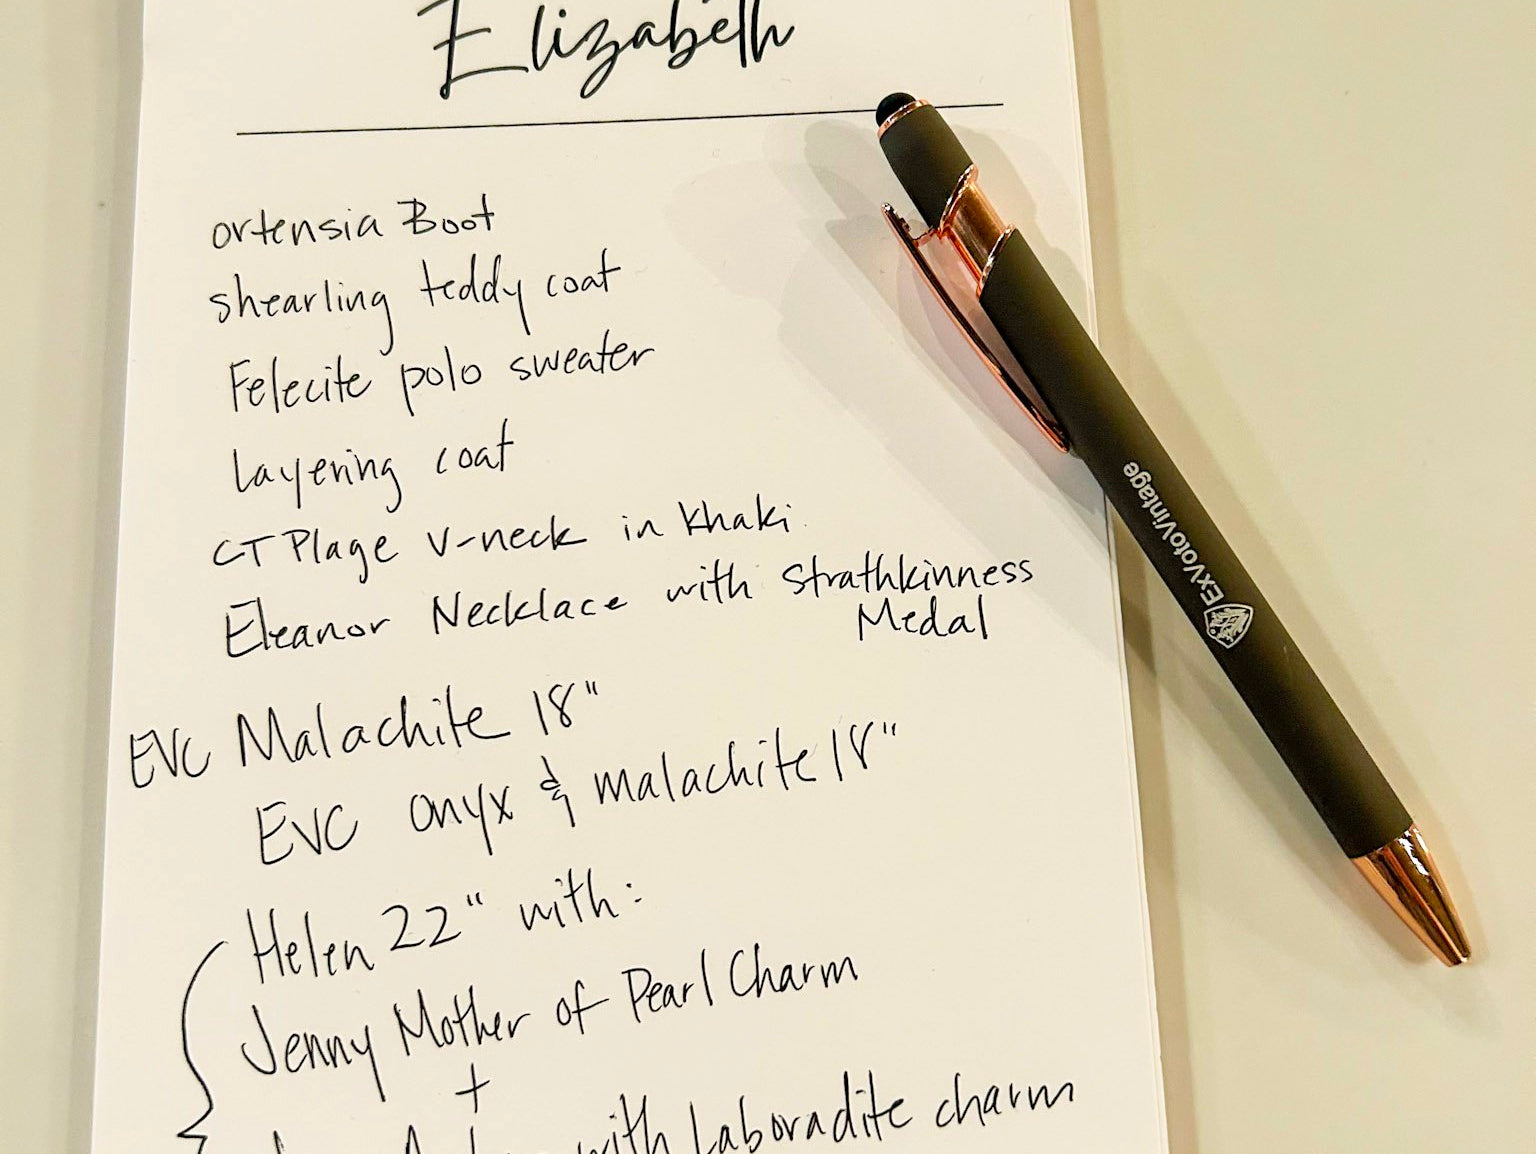 Elizabeth
ortensia Boot
shearling teddy coat
Felecite polo sweater
layering coat
CT Plage V-neck in Khaki
Eleanor Necklace with Strathkinness
Medal
EVC Malachite 18"
EVC onyx & malachite 18"
Helen 22" with:
Jenny Mother of Pearl Charm
+
with Laboradite charm
ExVotoVintage